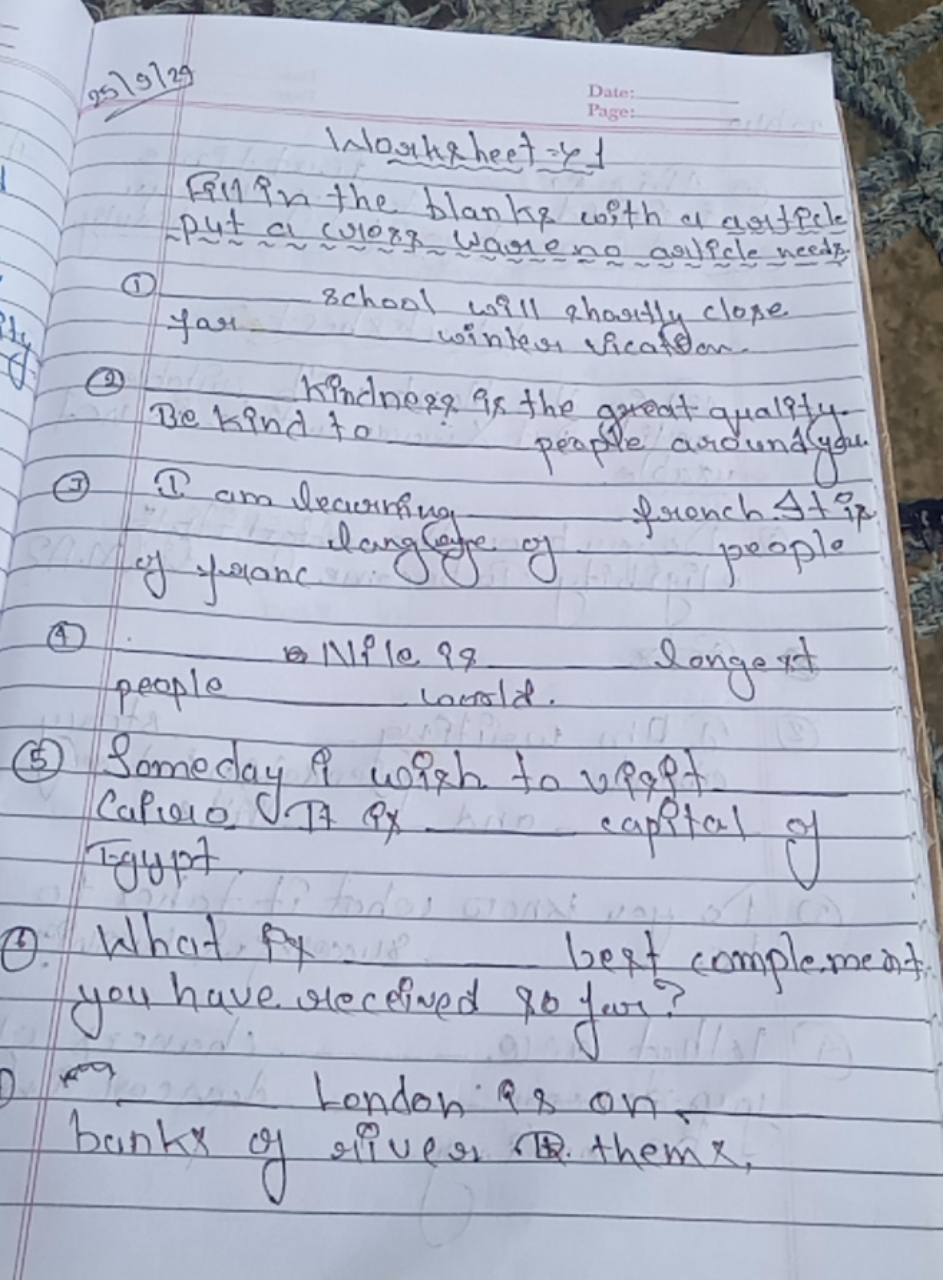 25/9/29
Date:
Page:
Worksheet - 1
Fill in the blanks with a article
put a cross ware no article needs
① school will shortly close
for winter vication.
② Kindness is the great quality.
Be kind to people around you
③ I am learning french It is
langgage of people
of franc
④ Nile is longest
people world.
⑤ Someday I wish to visit
Cairo It is capital of
Egypt.
⑥ What is best complement
you have received so far?
London is on
banks of river thems,